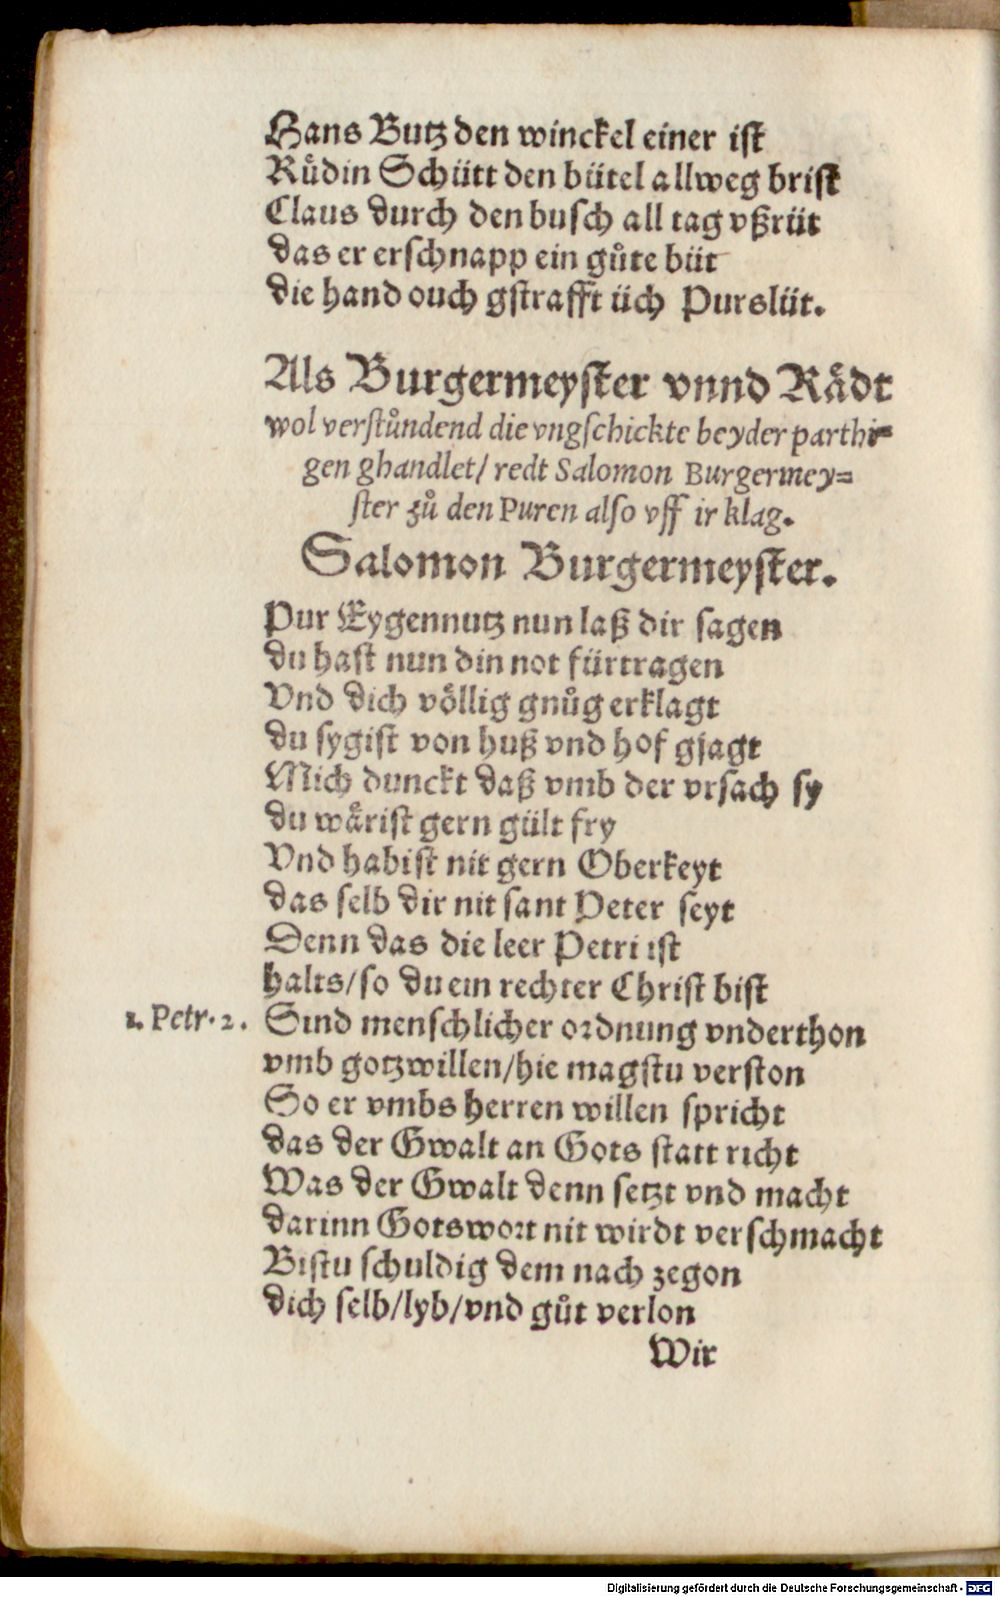 Hans Butz den winckel einer ist
Růdin Schütt den bütel allweg brist
Claus durch den busch all tag vßrüt
das er erschnapp ein gůte büt
die hand ouch gstrafft üch Purslüt.
Als Burgermeyster vnnd Rådt
wol verstůndend die vngschickte beyder parthi⸗
gen ghandlet/ redt Salomon Burgermey⸗
ster zů den Puren also vff ir klag.
Salomon Burgermeyster.
Pur Eygennutz nun laß dir sagen
du hast nun din not fürtragen
Vnd dich völlig gnůg erklagt
du sygist von huß vnd hof gjagt
Mich dunckt daß vmb der vrsach sy
du wärist gern gült fry
Vnd habist nit gern Oberkeyt
das selb dir nit sant Peter seyt
Denn das die leer Petri ist
halts/so du ein rechter Christ bist
1. Petr. 2. Sind menschlicher ordnung vnderthon
vmb gotzwillen/hie magstu verston
So er vmbs herren willen spricht
das der Gwalt an Gots statt richt
Was der Gwalt denn setzt vnd macht
darinn Gotswort nit wirdt verschmacht
Bistu schuldig dem nach zegon
dich selb/lyb/vnd gůt verlon
Wir
Digitalisierung gefördert durch die Deutsche Forschungsgemeinschaft - DFG